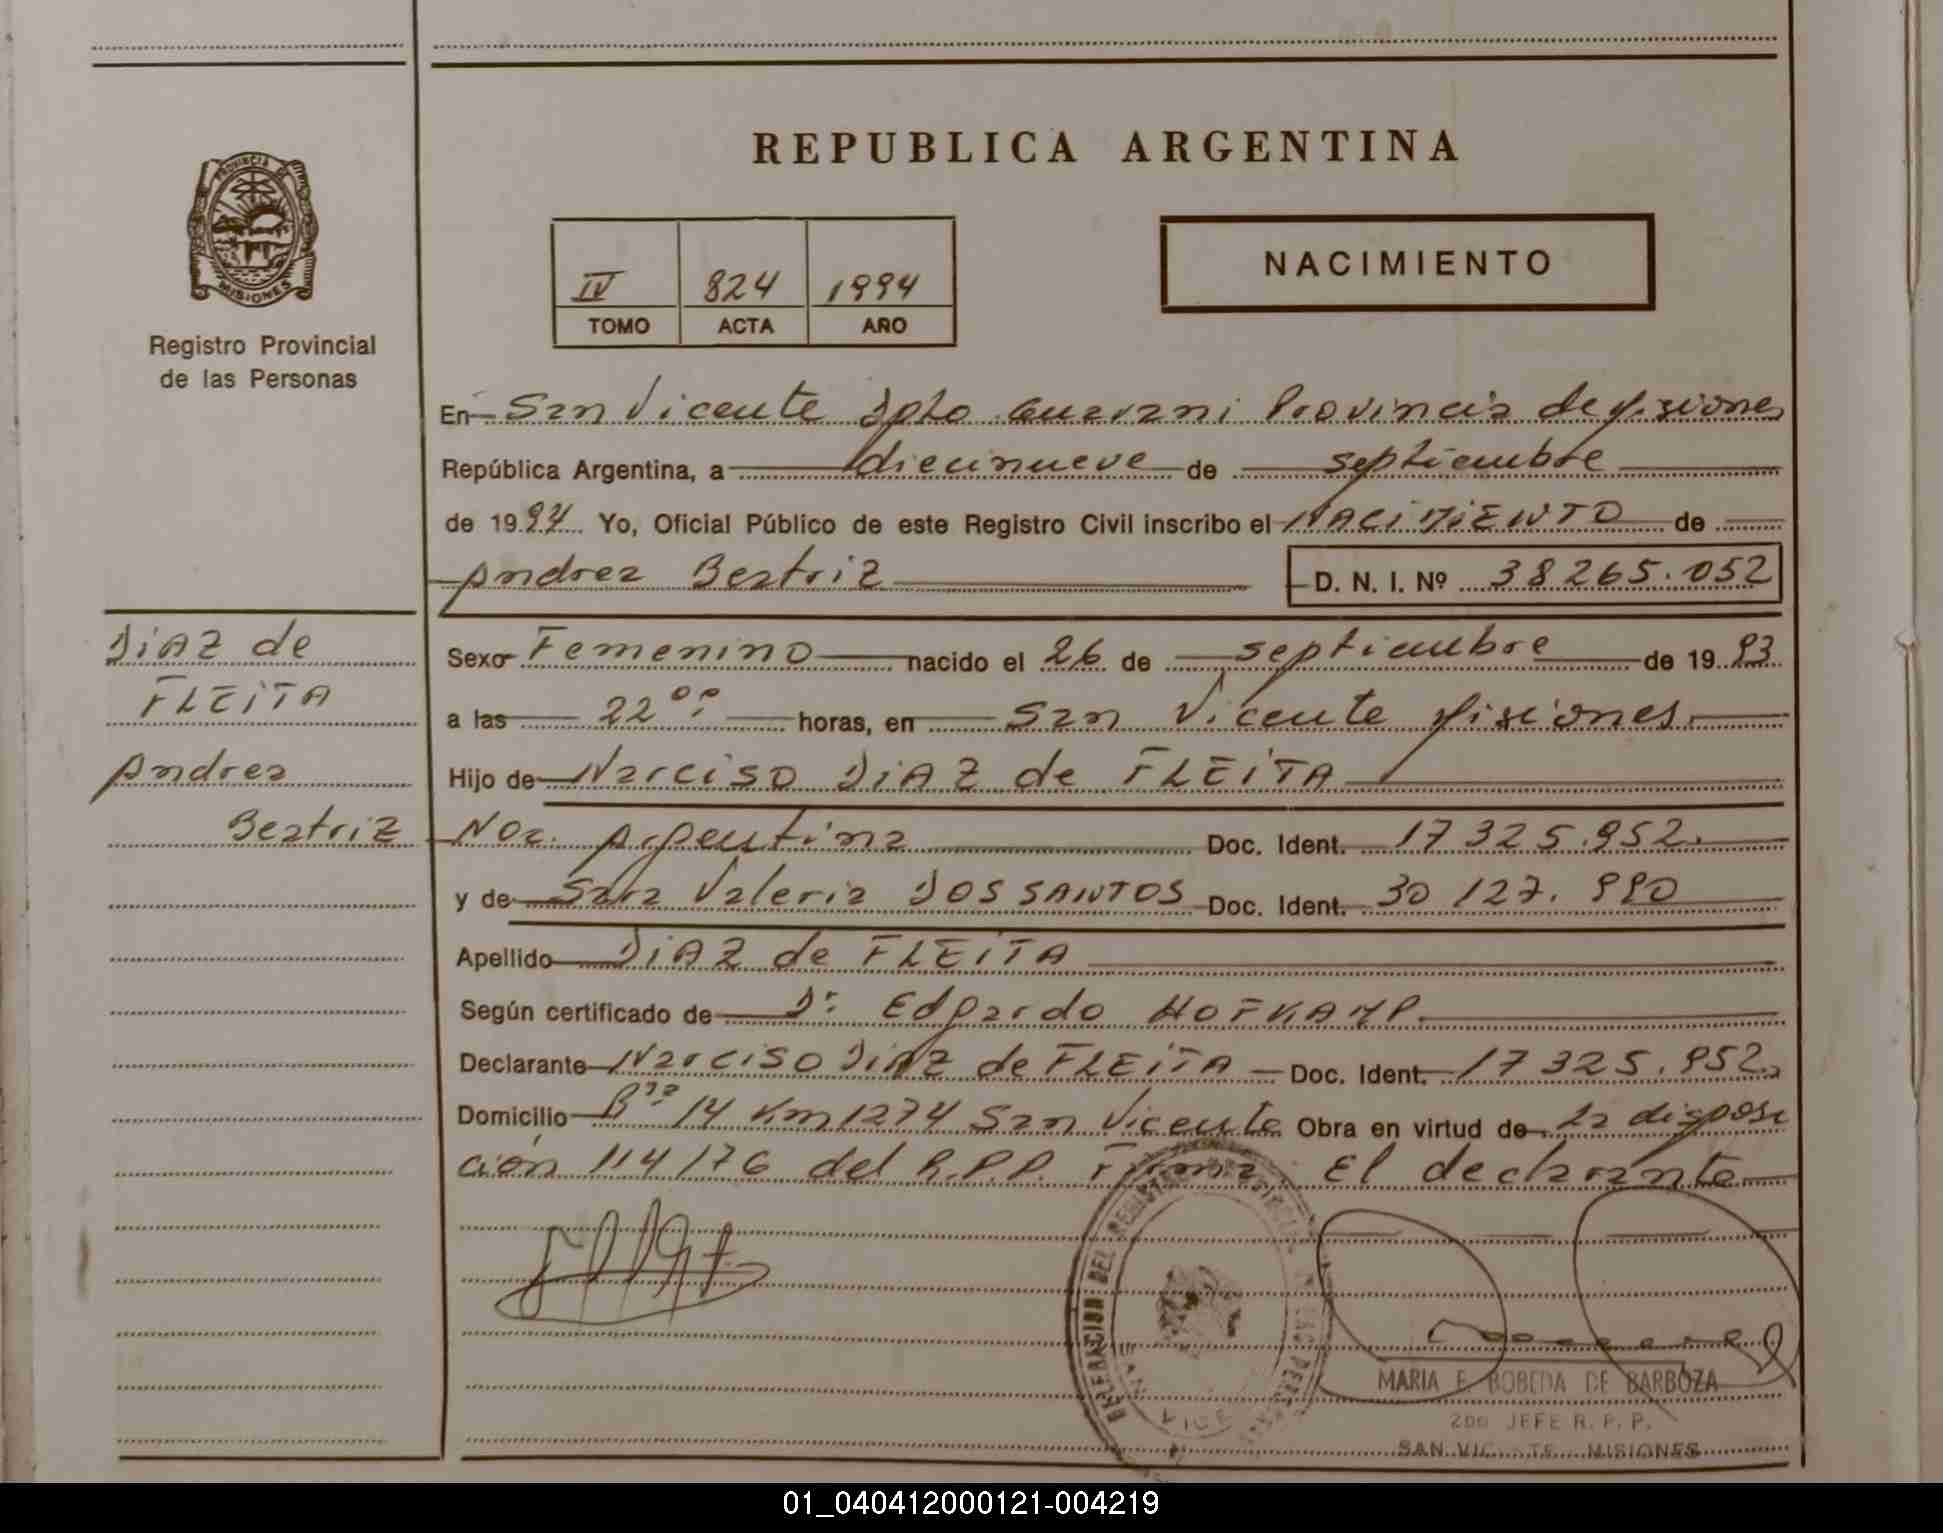 REPUBLICA ARGENTINA
PROVINCIA DE
MISIONES
Registro Provincial
de las Personas
IV 824 1994
TOMO ACTA AÑO
NACIMIENTO
En San Vicente Dpto Guarani Provincia de Misiones
República Argentina, a diecinueve de septiembre
de 1994 Yo, Oficial Público de este Registro Civil inscribo el NACIMIENTO de
Andrea Beatriz D. N. I. Nº 38265.052
DIAZ de
FLEITA
Andrea
Beatriz
Sexo Femenino nacido el 26 de septiembre de 1993
a las 22 00 horas, en San Vicente Misiones
Hijo de Narciso DIAZ de FLEITA
Nac. Argentina Doc. Ident. 17 325.952.
y de Sara Valeria DOS SANTOS Doc. Ident. 30 127.990
Apellido DIAZ de FLEITA
Según certificado de Dr Edgardo HOFKAMP.
Declarante Narciso DIAZ de FLEITA Doc. Ident. 17 325.952
Domicilio Bº 14 Km 1274 San Vicente Obra en virtud de la disposi
ción 114/76 del R.P.P. Firma El declarante
DELEGACION DEL REGISTRO
MARIA E. BOBEDA DE BARBOZA
2do JEFE R. P. P.
SAN VICENTE MISIONES
01_040412000121-004219